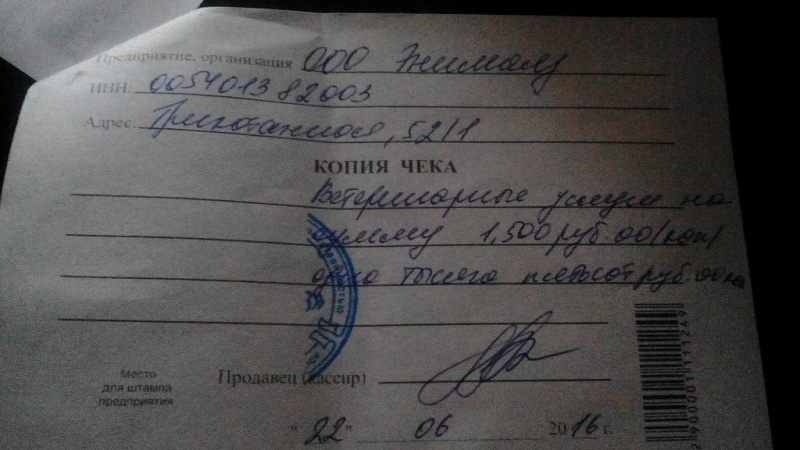 Предприятие, организация ООО Энималз
ИНН: 005401382003
Адрес: Трикотажная, 52/1
КОПИЯ ЧЕКА
Ветеринарные услуги на
сумму 1,500 руб. 00 (коп)
одна тысяча пятьсот руб. 00 коп
Место
для штампа
предприятия
Продавец (кассир)
"22" 06 2016 г.
2 900001 111249